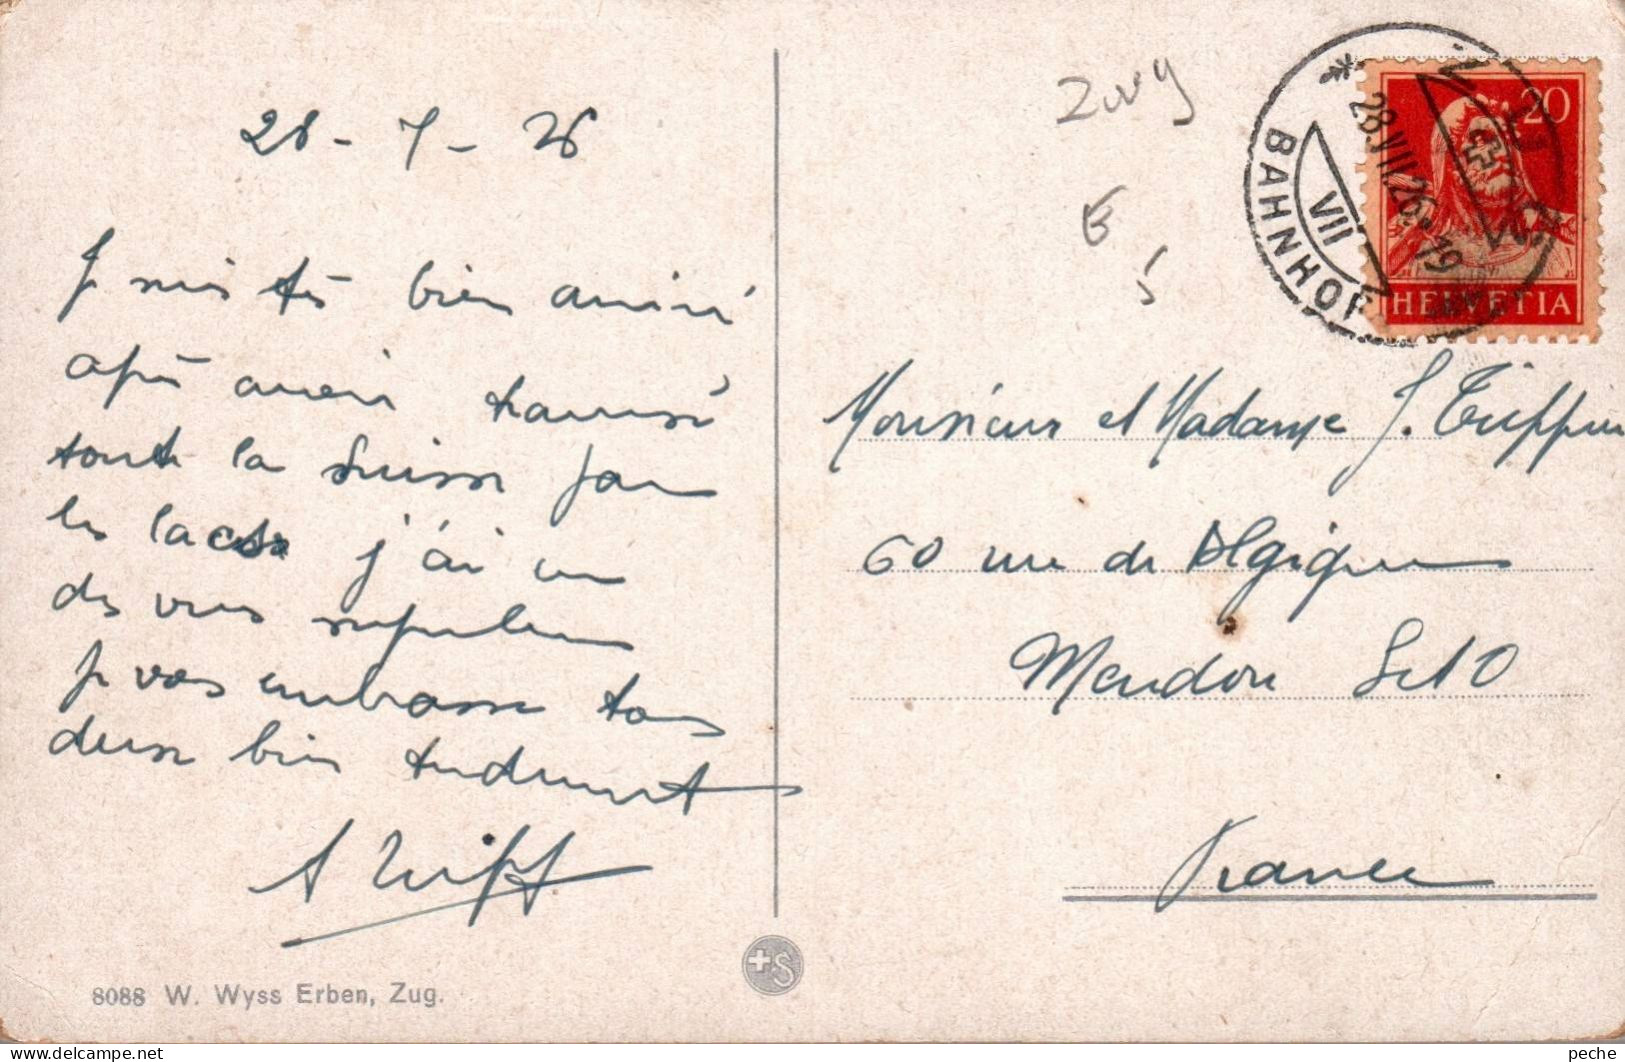 28-7-26
Je suis très bien arrivé
après avoir traversé
toute la Suisse par
les lacs j'ai vu
des vues superbes
Je vous embrasse tous
deux bien tendrement
8088 W. Wyss Erben, Zug.
+S
Zug
6
5
BAHNHOF
28.VII.26.-19
VII
20
HELVETIA
Monsieur et Madame J.
60 rue de
Meudon S et O
France
peche